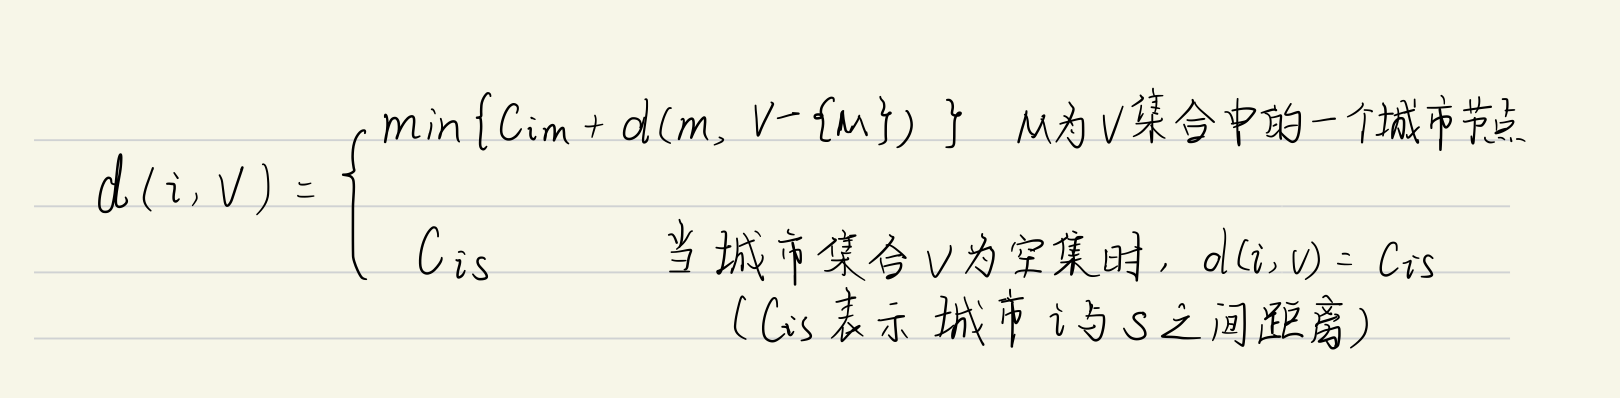 min{Cim + d(m, V-{M})} M为V集合中的一个城市节点
d(i, V) = {
Cis 当城市集合V为空集时, d(i,V) = Cis
(Cis表示城市i与S之间距离)